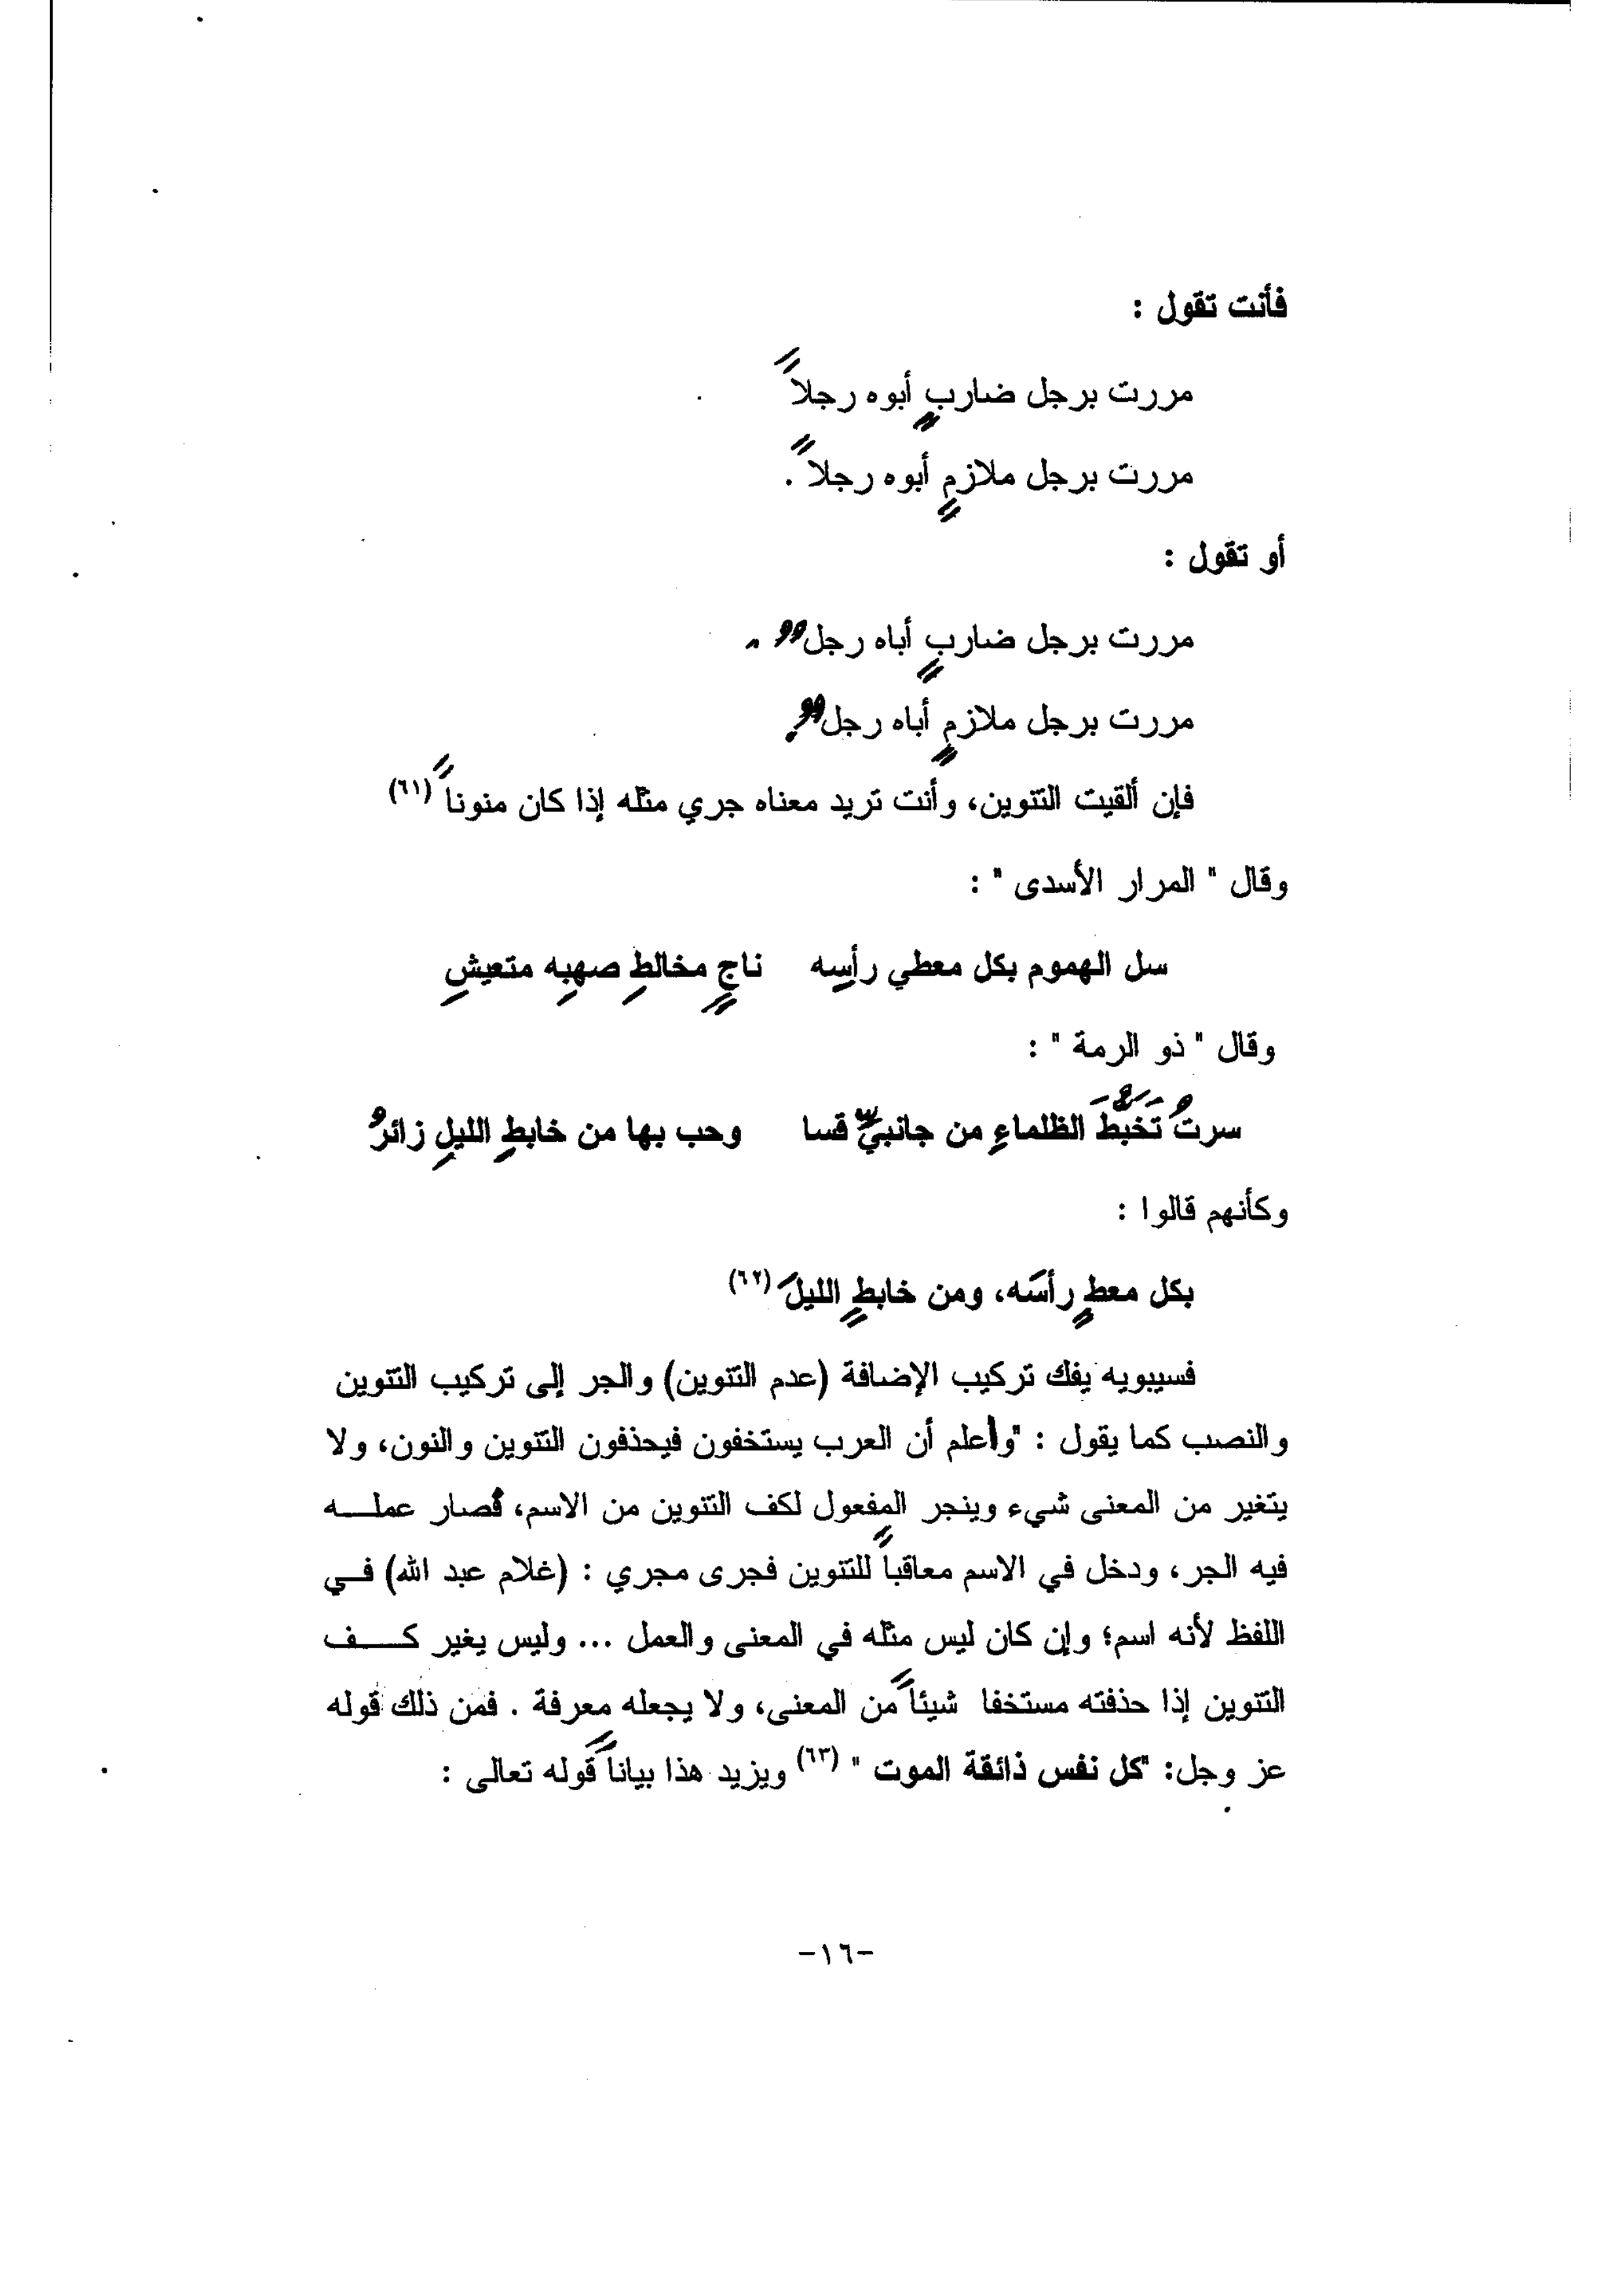 فأنت تقول :
مررت برجل ضاربٍ أبوه رجلاً
مررت برجل ملازمٍ أبوه رجلاً .
أو تقول :
مررت برجل ضاربٍ أباه رجلٌ .
مررت برجل ملازمٍ أباه رجلٌ .
فإن ألقيت التنوين، وأنت تريد معناه جري مثله إذا كان منوناً (٦١)
وقال " المرار الأسدى " :
سل الهموم بكل معطي رأسِه ناجٍ مخالطِ صهبِه متعيشِ
وقال " ذو الرمة " :
سرتُ تَخبَّطَ الظلماءِ من جانبيّ قسا وحب بها من خابطِ الليلِ زائرُ
وكأنهم قالوا :
بكل معطٍ رأسَه، ومن خابطٍ الليلَ (٦٢)
فسيبويه يفك تركيب الإضافة (عدم التنوين) والجر إلى تركيب التنوين
والنصب كما يقول : "وأعلم أن العرب يستخفون فيحذفون التنوين والنون، ولا
يتغير من المعنى شيء وينجر المفعول لكف التنوين من الاسم، فصار عملـه
فيه الجر، ودخل في الاسم معاقباً للتنوين فجرى مجري : (غلام عبد الله) فـي
اللفظ لأنه اسم؛ وإن كان ليس مثله في المعنى والعمل ... وليس يغير كـف
التنوين إذا حذفته مستخفا شيئاً من المعنى، ولا يجعله معرفة . فمن ذلك قوله
عز وجل: "كل نفس ذائقة الموت " (٦٣) ويزيد هذا بياناً قوله تعالى :
-١٦-